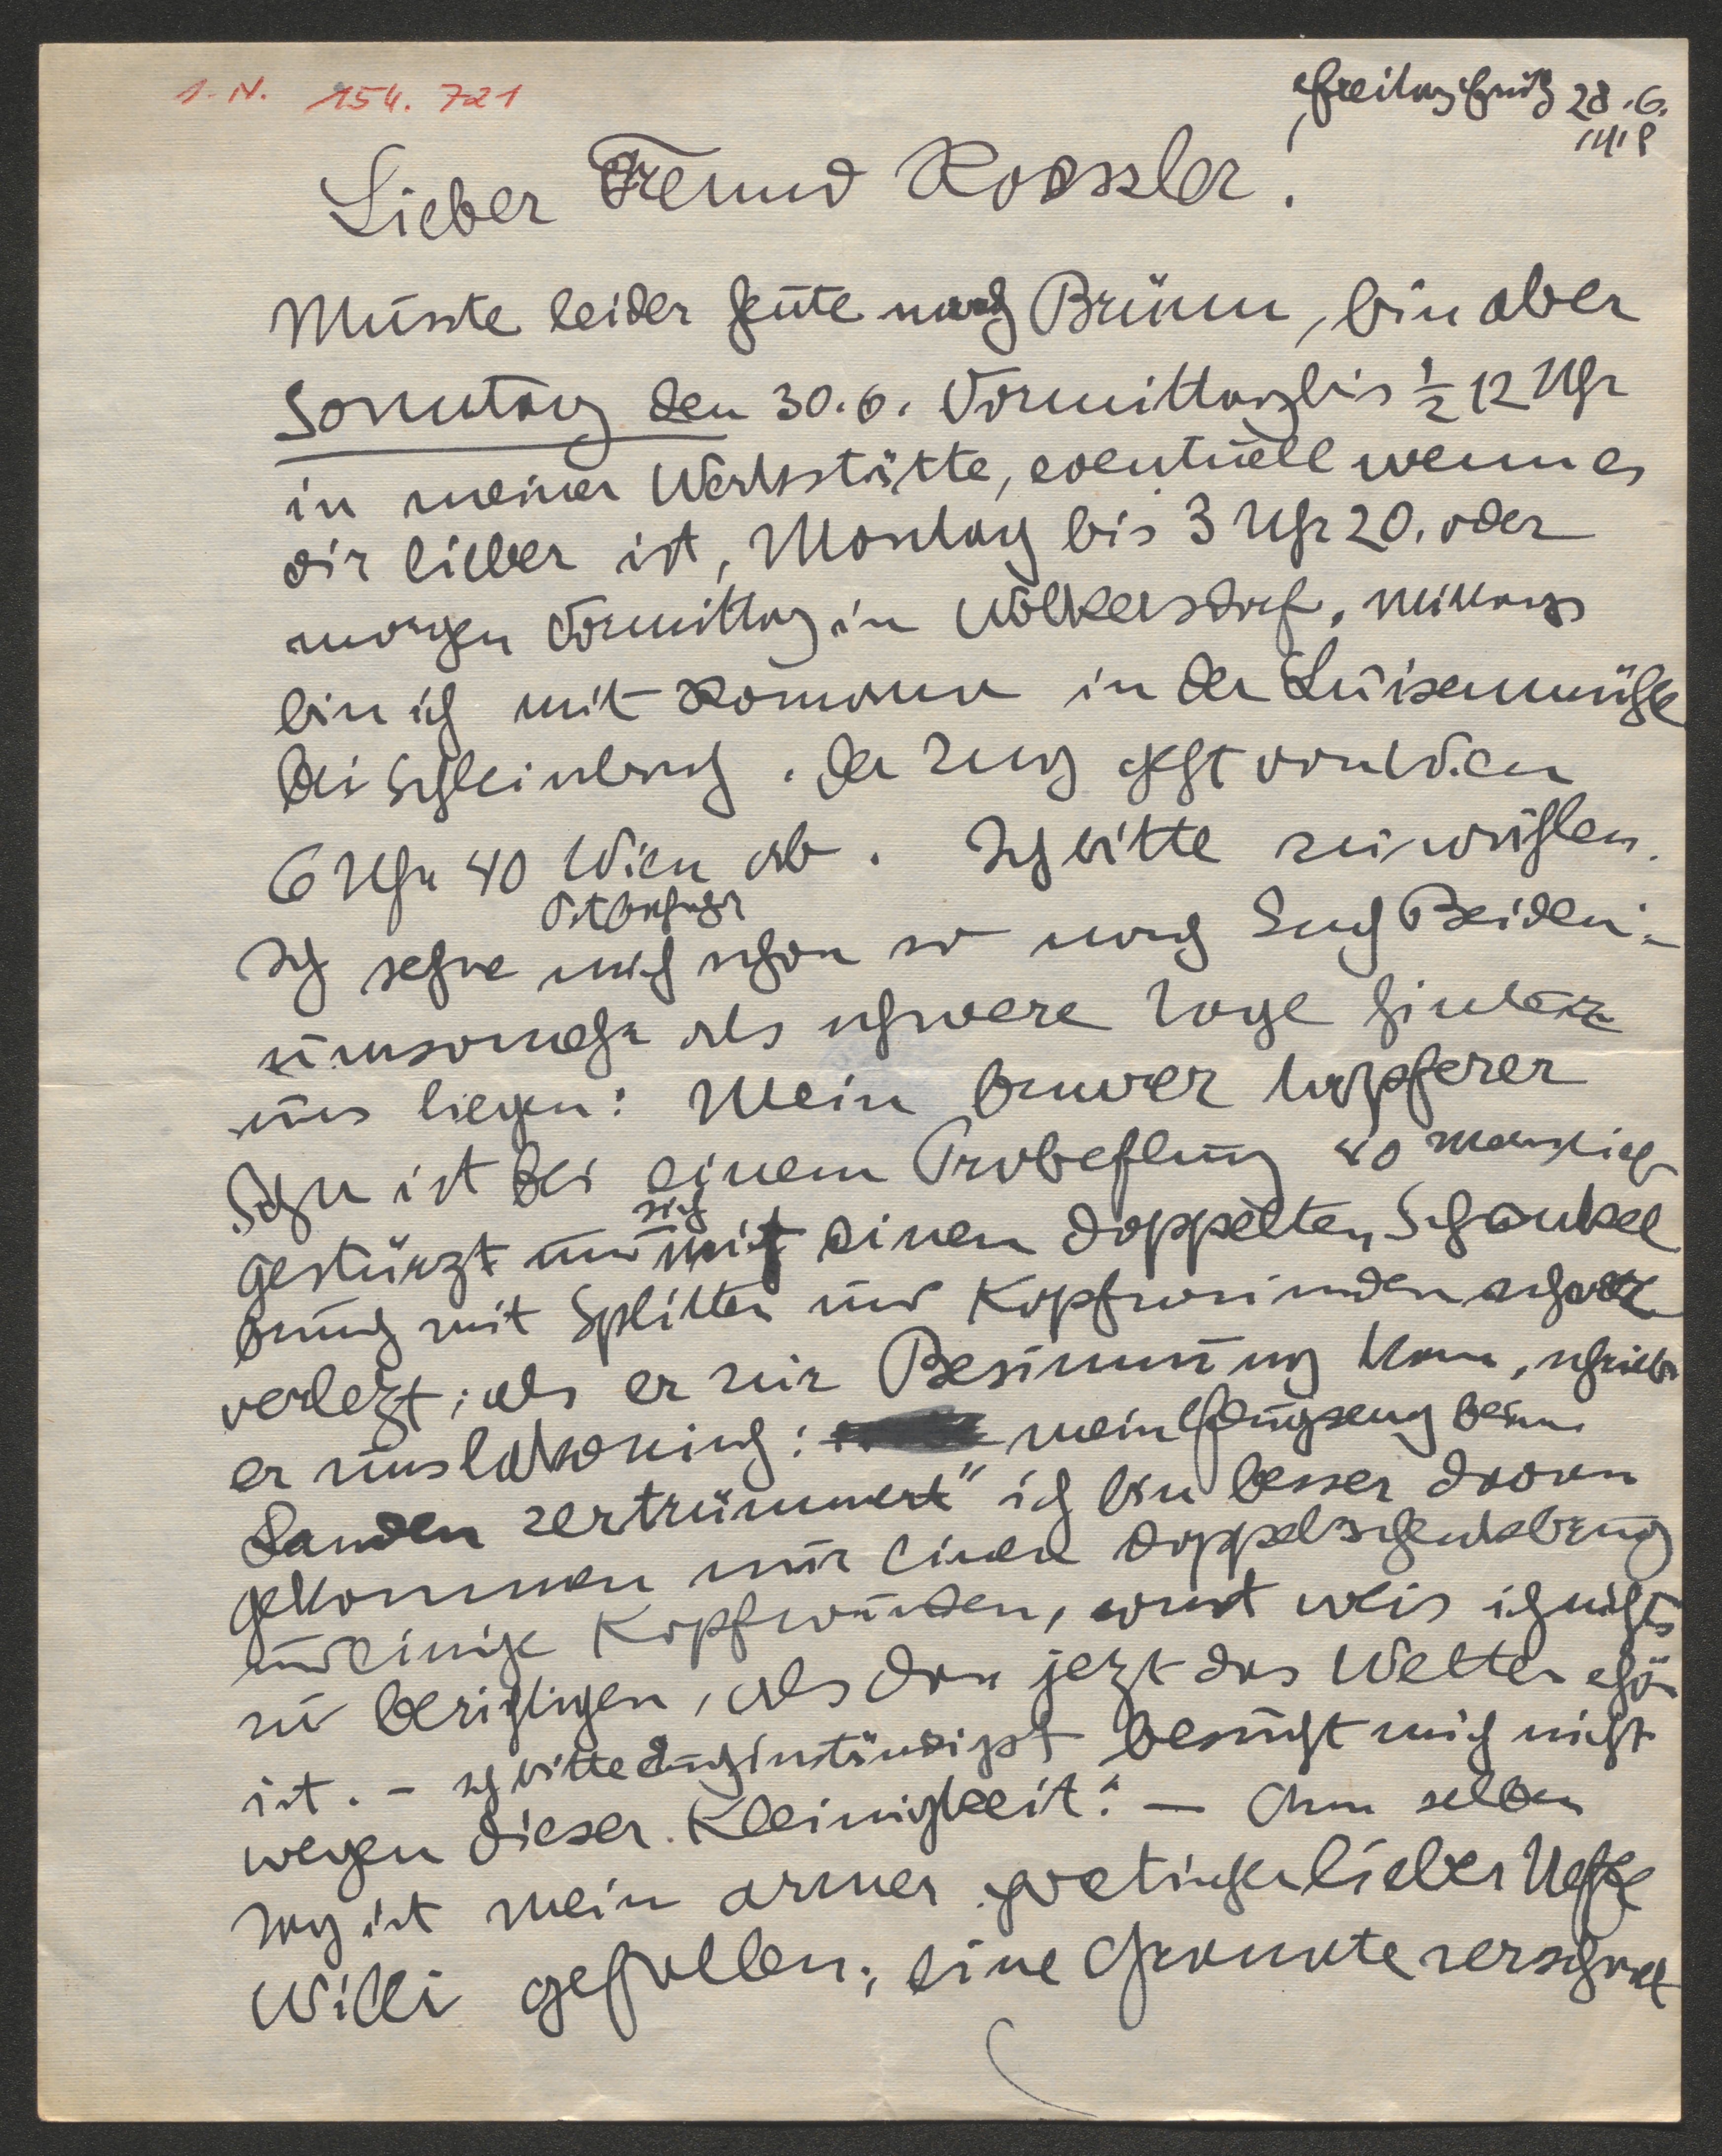 I. N. 154.721
Freitag früh 28.6.
1918
Lieber Freund Roessler!
Musste leider heute nach Brünn, bin aber
Sonntag den 30.6. Vormittag bis ½ 12 Uhr
in meiner Werkstätte, eventuell wenn es
dir lieber ist, Montag bis 3 Uhr 20. oder
morgen Vormittag in Wolkersdorf. Mittags
bin ich mit Romana in der Luisenmühle
bei Schleinbach. Der Zug geht von Wien
6 Uhr 40 Wien ab. Ich bitte zu wählen.
Ostbahnhof
Ich sehne mich schon so nach Euch Beiden:
umsomehr als schwere Tage hinter
uns liegen: Mein braver tapferer
Sohn ist bei einem Probeflug 40 m
gestürzt und sich einen doppelten Schenkel
bruch mit Splitter und Kopfwunden
verlezt; als er zur Besinnung kam, schrieb
er uns lakonisch: mein Flugzeug beim
Landen zertrümmert" ich bin besser davon
gekommen nur einen Doppelschenkelbruch
und einige Kopfwunden, sonst weis ich nichts
zu berichtigen, als dass jezt das Wetter schön
ist. – Ich bitte Euch inständigst besucht mich nicht
wegen dieser Kleinigkeit." – Am selben
Tag ist mein armer lieber Neffe
Willi gefallen; eine Granate